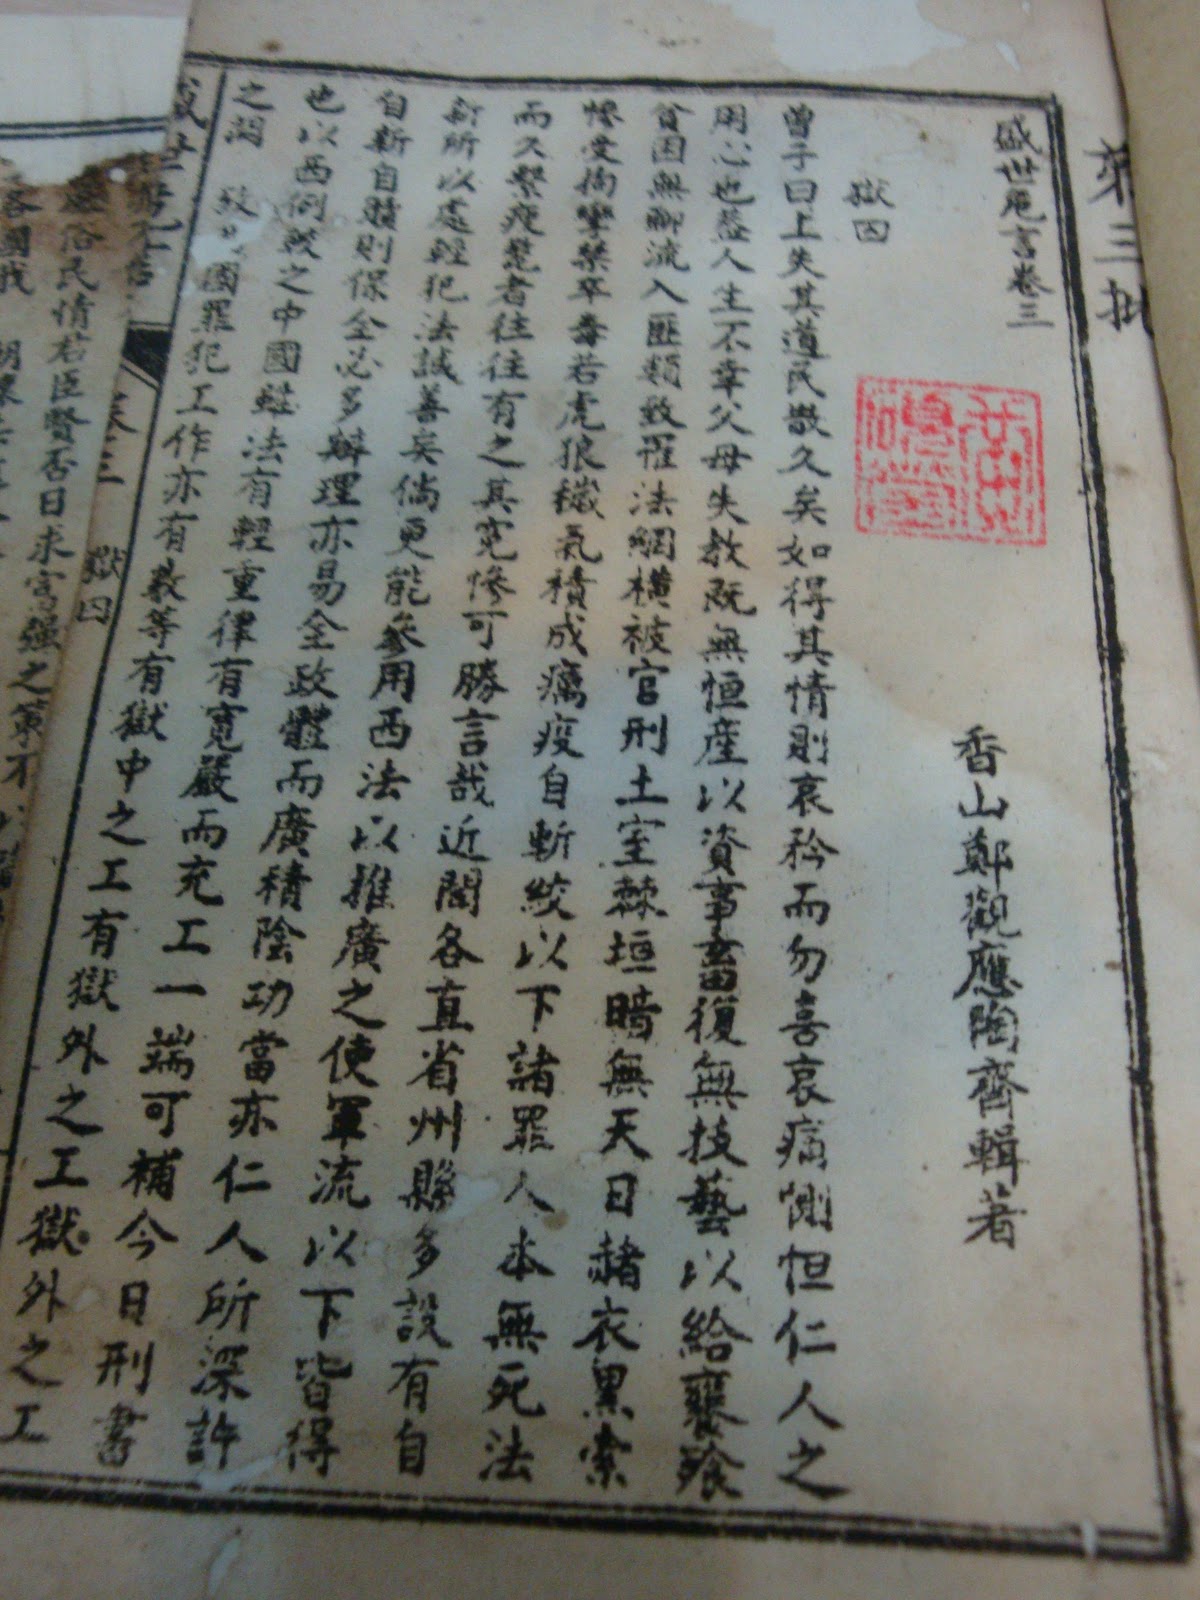 第三
盛世危言卷三
香山鄭觀應陶齋輯著
獄四
曾子曰上失其道民散久矣如得其情則哀矜而勿喜哀痛惻怛仁人之
用心也蓋人生不幸父母失教既無恒產以資事畜復無技藝以給饔飧
貧困無聊流入匪類致罹法網橫被官刑土室棘垣暗無天日赭衣黑索
慘受拘攣禁卒毒若虎狼穢氣積成癘疫自斬絞以下諸罪人本無死法
而久繫瘐斃者往往有之其冤慘可勝言哉近聞各直省州縣多設有自
新所以處輕犯法誠善矣倘更能參用西法以推廣之使軍流以下皆得
自新自贖則保全必多辦理亦易全政體而廣積陰功當亦仁人所深許
也以西例較之中國雖法有輕重律有寬嚴而充工一端可補今日刑書
之闕 國罪犯工作亦有數等有獄中之工有獄外之工獄外之工
盛世危言 卷三 獄四
俗民情君臣賢否日求富強之策不
各國